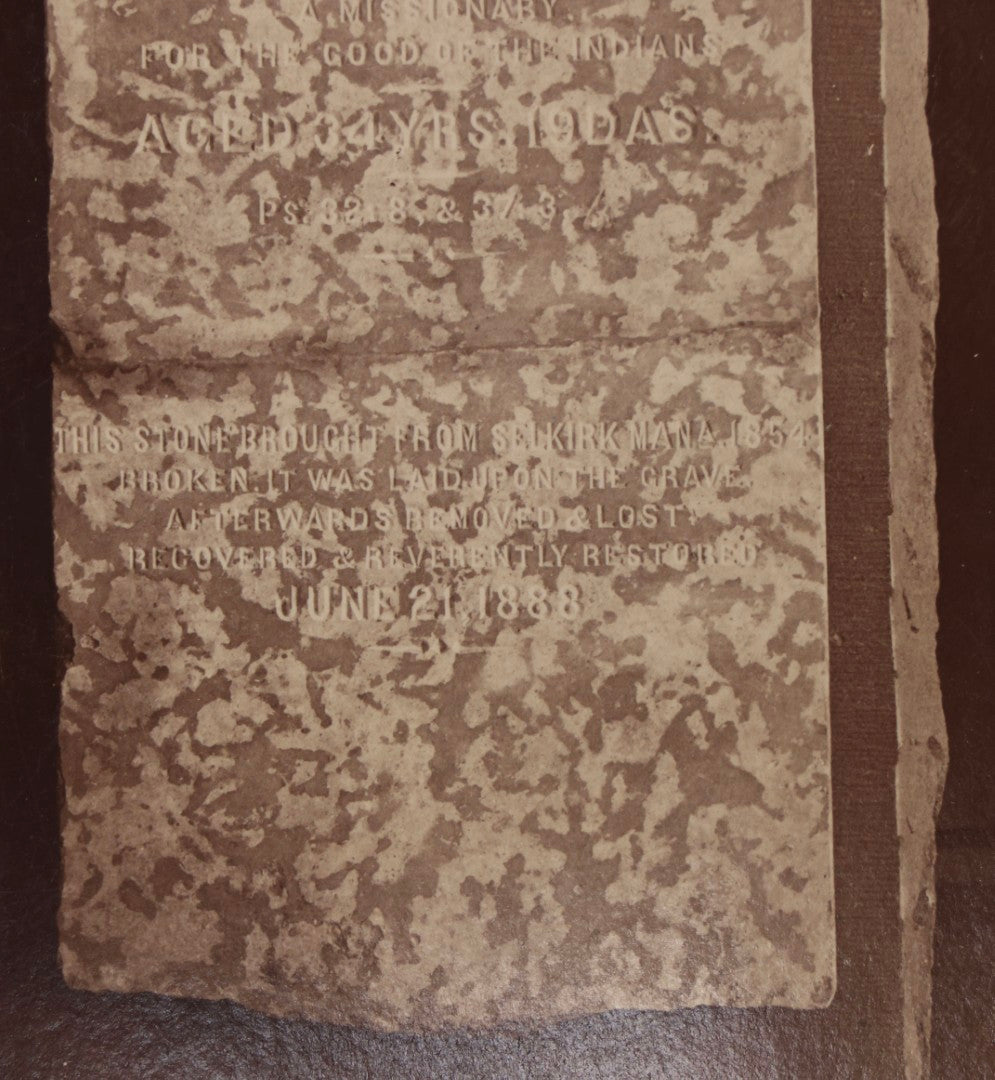 A MISSIONARY.
FOR THE GOOD OF THE INDIANS
AGED 34 YRS. 19 DAS.
Ps. 32. 8, & 37. 3,
THIS STONE BROUGHT FROM SELKIRK MANA, 1854
BROKEN. IT WAS LAID UPON THE GRAVE,
AFTERWARDS REMOVED & LOST.
RECOVERED & REVERENTLY RESTORED
JUNE 21, 1888